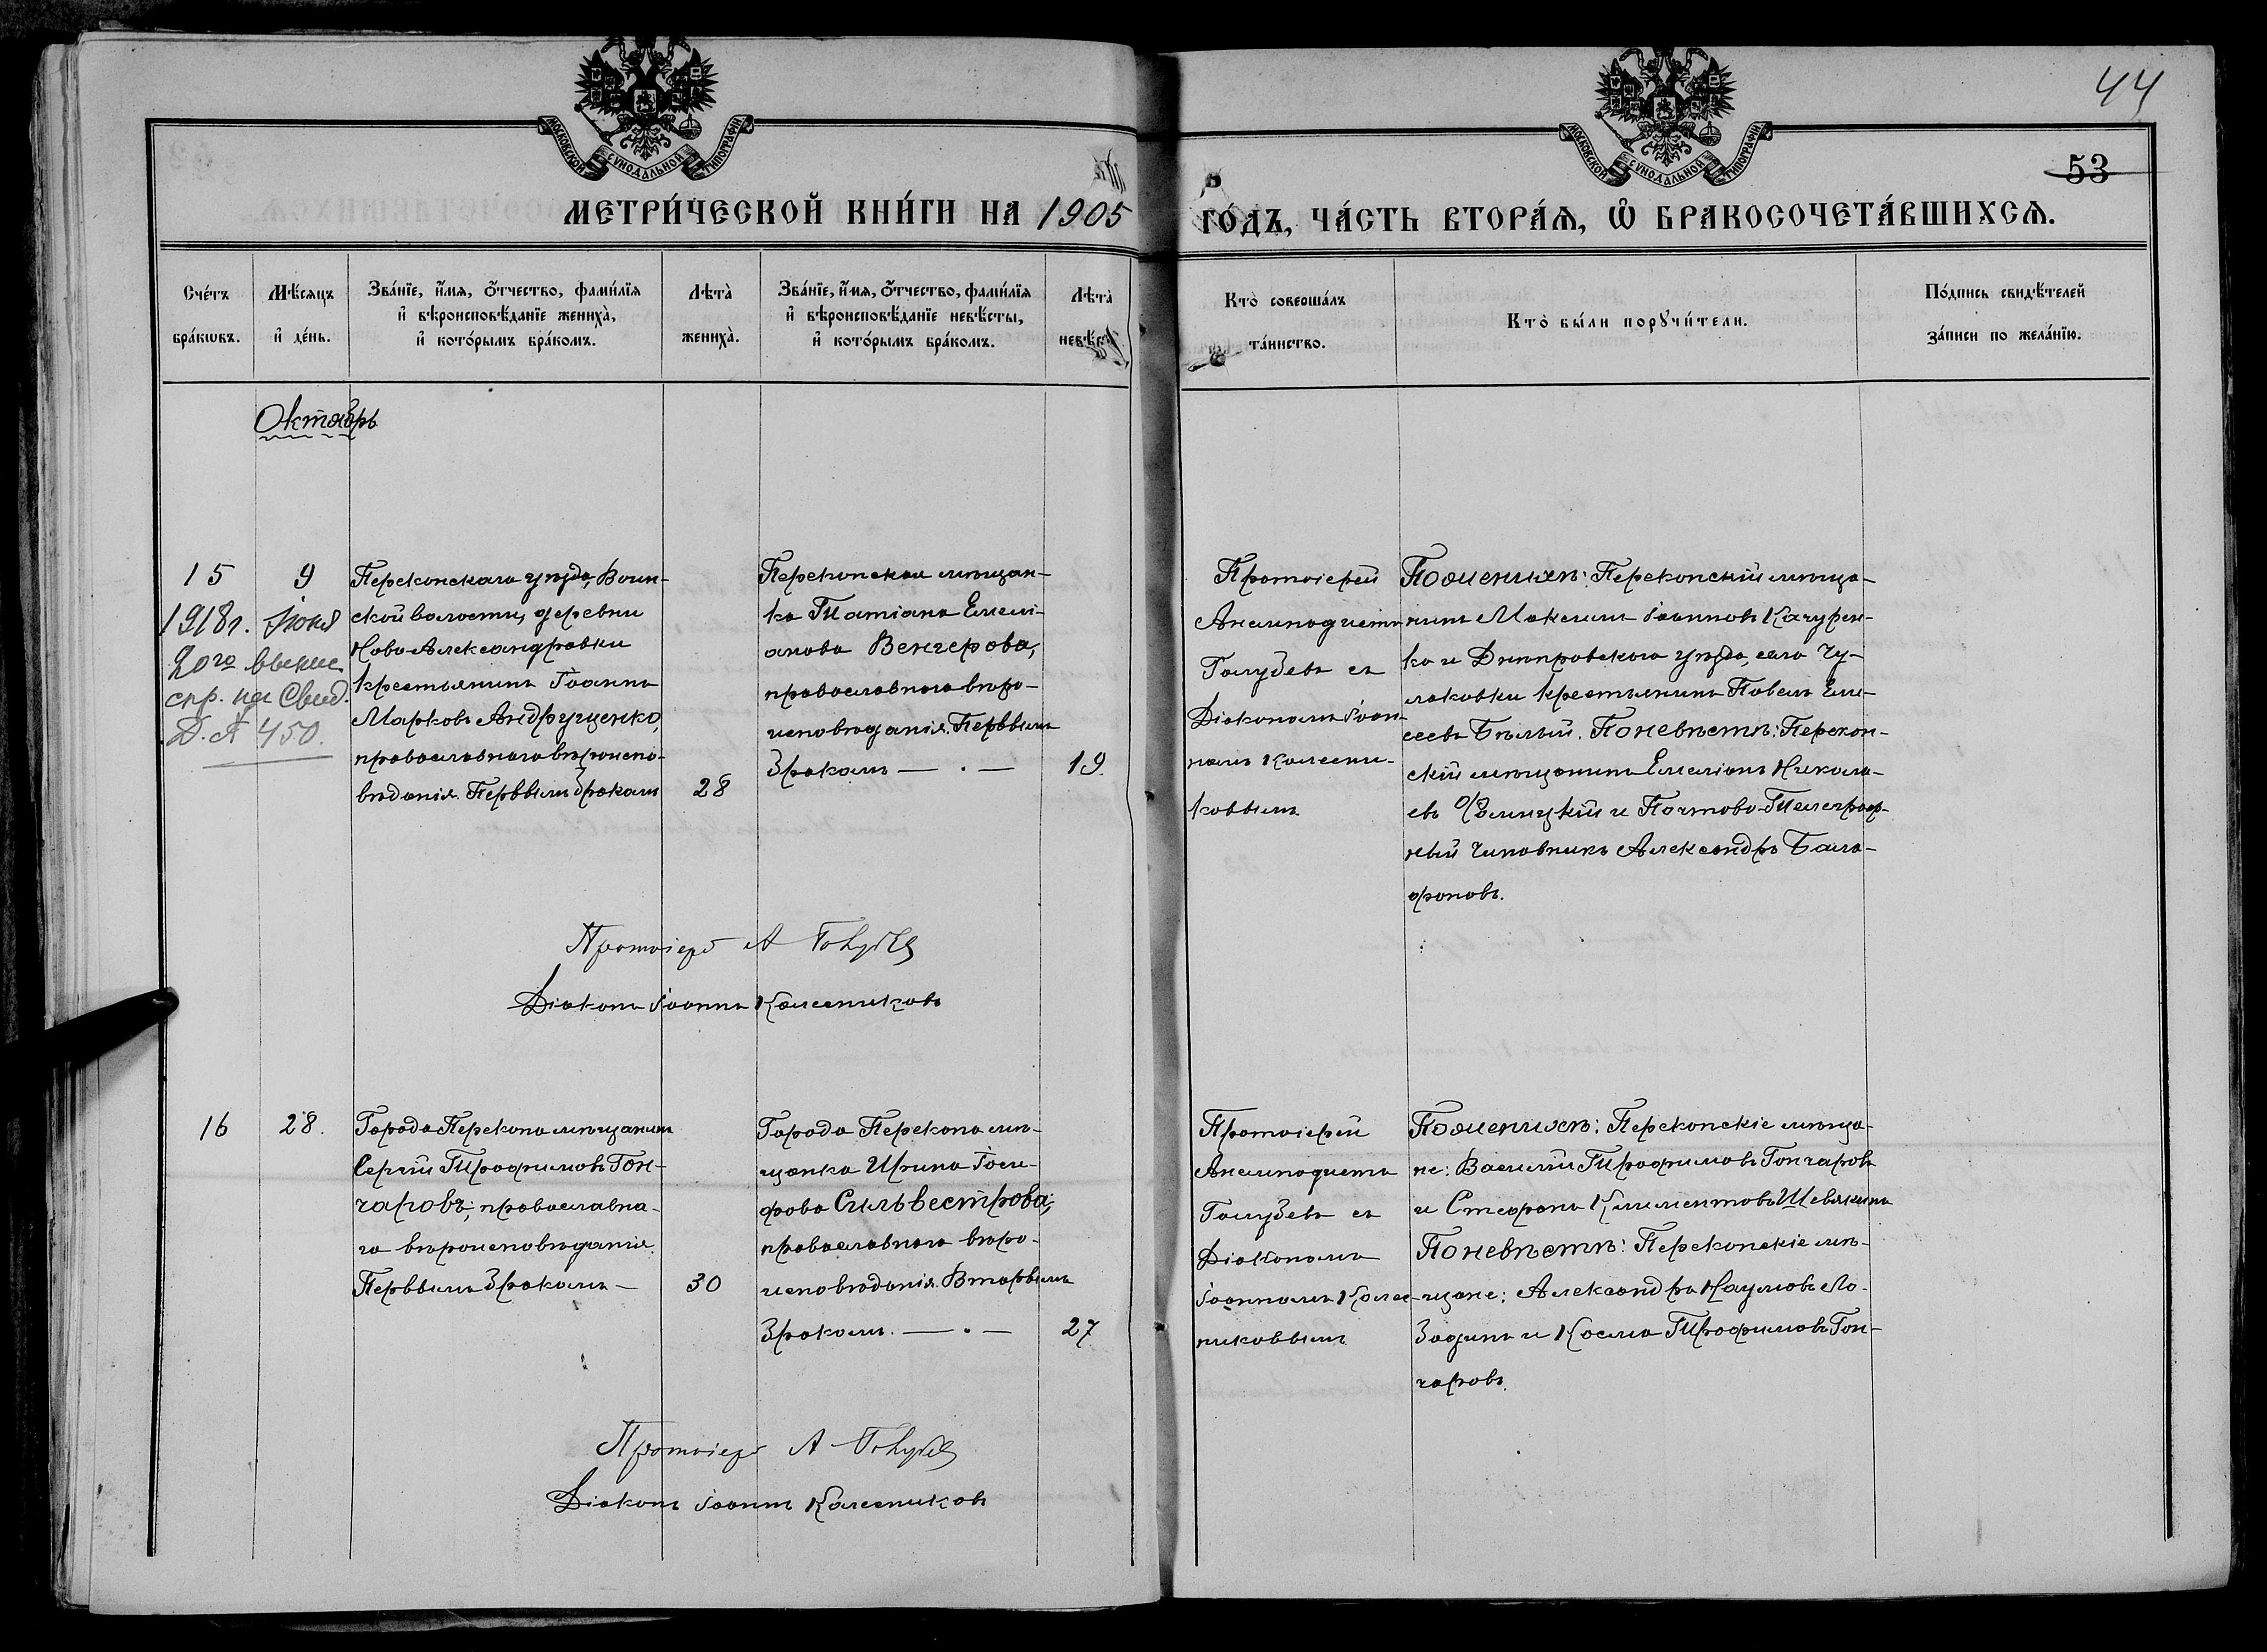 44
53
МОСКОВСКОЙ СѴНОДАЛЬНОЙ ТИПОГРАФІИ
МОСКОВСКОЙ СѴНОДАЛЬНОЙ ТИПОГРАФІИ
МЕТРИ́ЧЕСКОЙ КНИ́ГИ НА 1905
ГО́ДЪ, ЧА́СТЬ ВТОРА́Ѧ, Ѽ БРАКОСОЧЕТА́ВШИХСѦ.
Сче́тъ
бра́кѡвъ.
Мѣ́сѧцъ
и҆ де́нь.
Зва́нїе, и҆́мѧ, ѻ҆́тчество, фами́лїѧ
и҆ вѣроисповѣ́данїе жениха̀,
и҆ кото́рымъ бра́комъ.
Лѣта̀
жениха̀.
Зва́нїе, и҆́мѧ, ѻ҆́тчество, фами́лїѧ
и҆ вѣроисповѣ́данїе невѣ́сты,
и҆ кото́рымъ бра́комъ.
Лѣта̀
невѣ́сты.
Кто̀ соверша́лъ
та́инство.
Кто̀ бы́ли порꙋчи́тели.
По́дпись свидѣ́телей
за́писи по жела́нїю.
Октябрь
15
9
1918г. Іюня
2ого
спр. на Свид.
450.
Перекопскаго уѣзда, Воин-
ской волости, деревни
Ново-Александровки
крестьянинъ Іоаннъ
Марковъ Андрущенко,
православнаго вѣроиспо-
вѣданія. Первымъ бракомъ
28
Перекопская мѣщан-
ка Татіана Емелі-
анова Венгерова,
православнаго вѣро-
исповѣданія. Первымъ
бракомъ — . —
19.
Протоіерей
Анемподистъ
Голубевъ съ
Діакономъ Іоан-
номъ Колесни-
ковымъ.
По женихѣ: Перекопскій мѣща-
нинъ Максимъ Іоанновъ Качурен-
ко и Днѣпровскаго уѣзда, села Чу-
лаковки крестьянинъ Павелъ Ели-
сеевъ Бѣлый. По невѣстѣ: Перекоп-
скій мѣщанинъ Емеліанъ Никола-
евъ и Почтово-Телеграф-
ный чиновникъ Александръ Бала-
фоновъ.
Протоіерей А Голубев
Діаконъ Іоаннъ Колесниковъ
16
28.
Города Перекопа мѣщанинъ
Сергій Трофимовъ Гон-
чаровъ, православна-
го вѣроисповѣданія.
Первымъ бракомъ —
30
Города Перекопа мѣ-
щанка Ирина Іоси-
фова Сильвестрова,
православнаго вѣро-
исповѣданія. Вторымъ
бракомъ. — . —
27
Протоіерей
Анемподистъ
Голубевъ съ
Діакономъ
Іоанномъ Колес-
никовымъ.
По женихѣ: Перекопскіе мѣща-
не: Василій Трофимовъ Гончаровъ
и Стефанъ Климентовъ Шевякинъ
По невѣстѣ: Перекопскіе мѣ-
щане: Александръ Наумовъ Ло-
бодинъ и Косма Трофимовъ Гон-
чаровъ.
Протоіерей А Голубев
Діаконъ Іоаннъ Колесниковъ